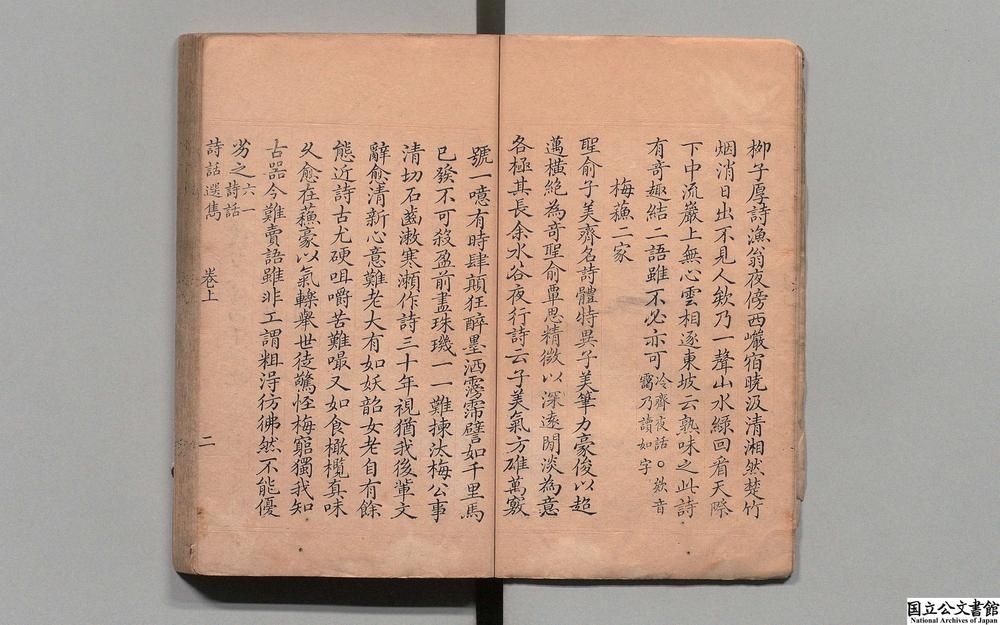 柳子厚詩漁翁夜傍西巖宿曉汲清湘然楚竹
烟消日出不見人欸乃一聲山水綠回看天際
下中流巖上無心雲相逐東坡云熟味之此詩
有奇趣結二語雖不必亦可冷齊夜話○欸音
靄乃讀如字
梅蘓二家
聖俞子美齊名詩體特異子美筆力豪俊以超
邁橫絶為奇聖俞覃思精微以深遠閒淡為意
各極其長余水谷夜行詩云子美氣方雄萬竅
號一噫有時肆顛狂醉墨洒霶霈譬如千里馬
已發不可殺盈前盡珠璣一一難揀汰梅公事
清切石齒漱寒瀬作詩三十年視猶我後輩文
辭愈清新心意難老大有如妖韶女老自有餘
態近詩古尤硬咀嚼苦難嘬又如食橄欖真味
久愈在蘓豪以氣轢舉世徒驚怪梅窮獨我知
古器今難賣語雖非工謂粗淂彷彿然不能優
劣之六一詩話
詩話選雋
卷上
二
国立公文書館
National Archives of Japan